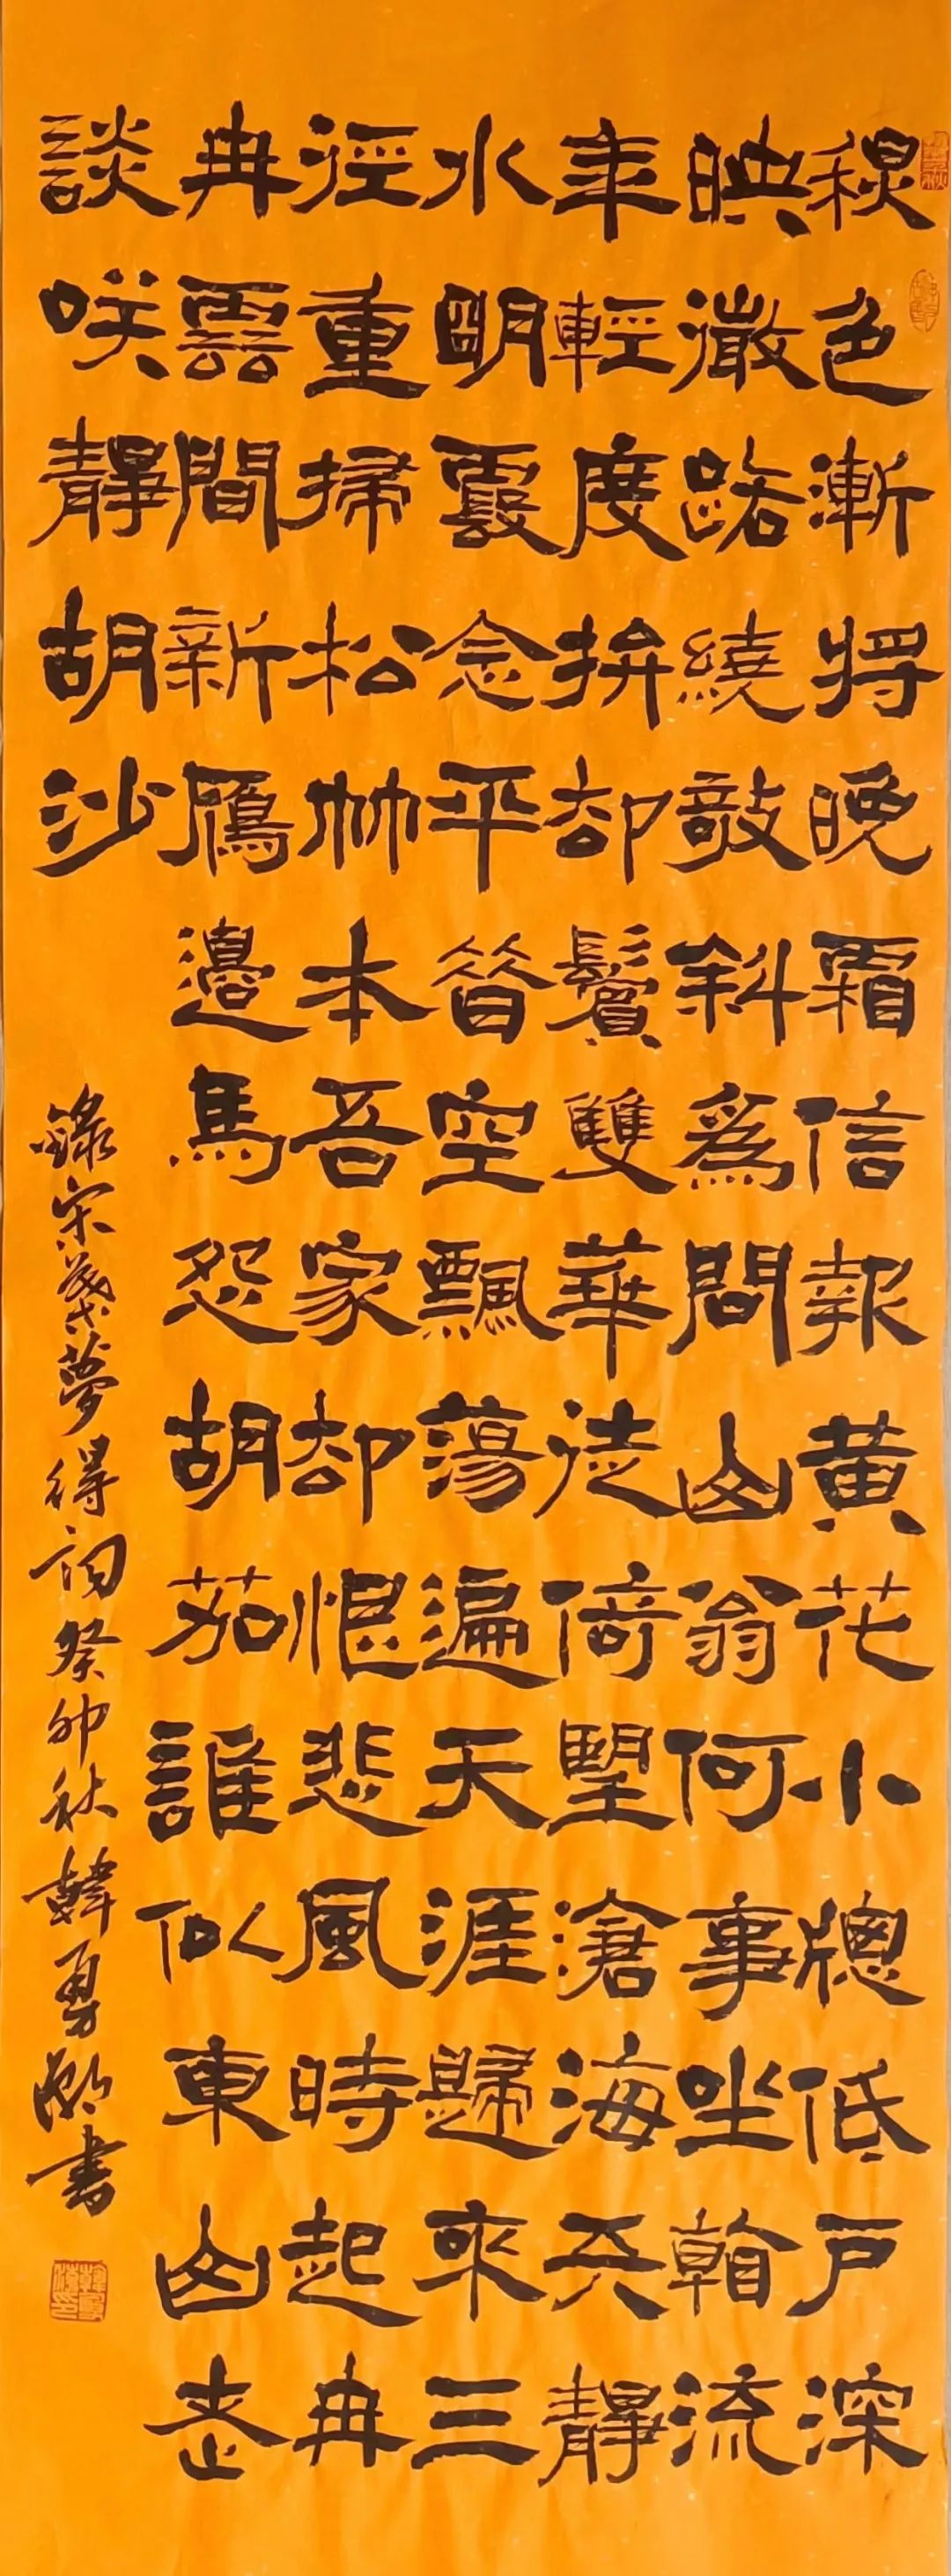 秋色漸将晚霜信報黄花小窻低戶深
映微路繞敧斜為問山翁何事坐看流
年輕度拚却鬢雙華徙倚望滄海天靜
水明霞念平昔空飄蕩遍天涯歸來三
徑重掃松竹本吾家却恨悲風時起冉
冉雲間新鴈邊馬怨胡笳誰似東山老
談咲靜胡沙
錄宋葉夢得詞癸卯秋韓勇書